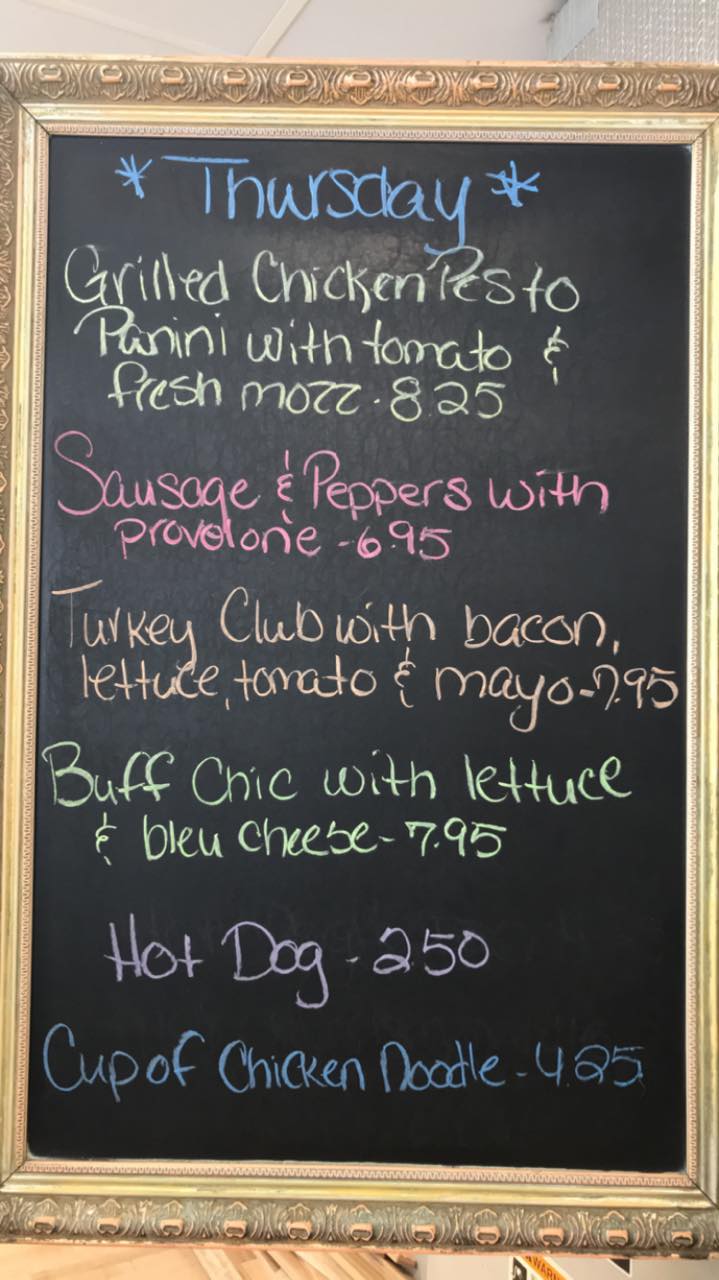 * Thursday *
Grilled Chicken Pesto
Panini with tomato &
fresh mozz - 825
Sausage & Peppers with
provolone - 6.95
Turkey Club with bacon,
lettuce, tomato & mayo - 7.95
Buff Chic with lettuce
& bleu cheese - 7.95
Hot Dog - 250
Cup of Chicken Noodle - 4.25
WARN